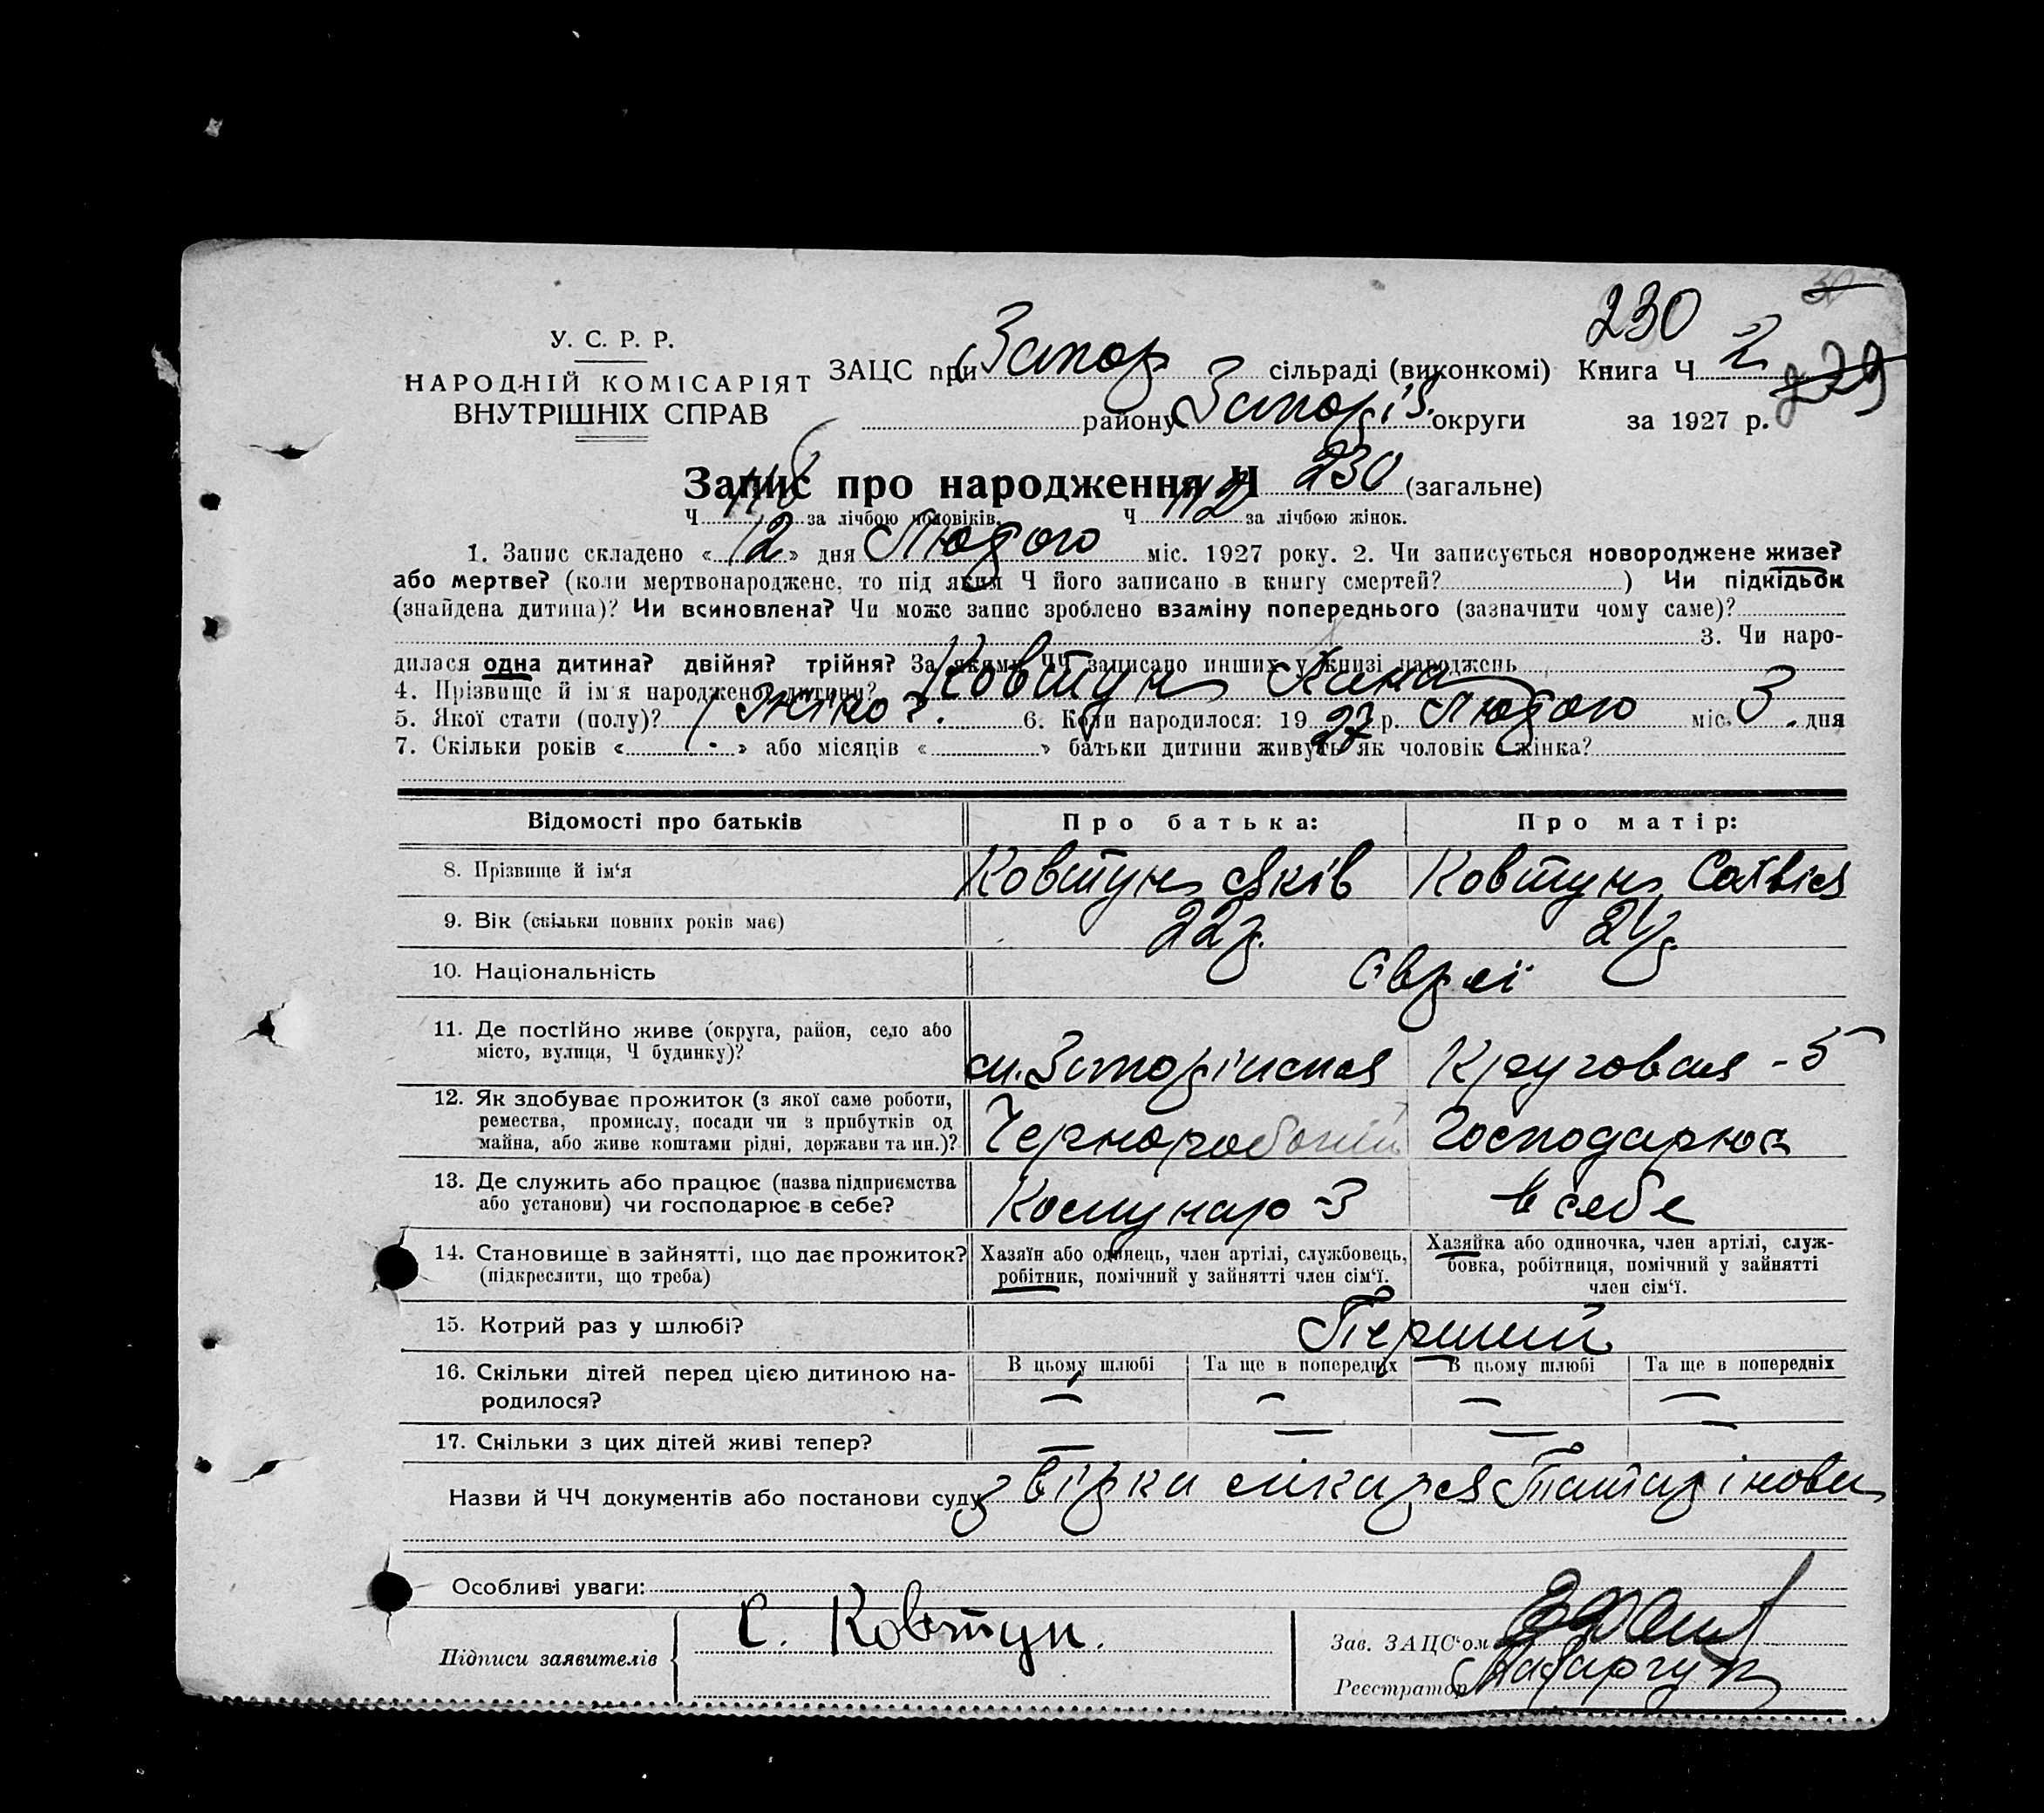 230
У. С. Р. Р.
НАРОДНІЙ КОМІСАРІЯТ
ВНУТРІШНІХ СПРАВ
ЗАЦС при Запор сільраді (виконкомі) Книга Ч 2
229
району Запоріз. округи за 1927 р.
Запис про народження Ч 230 (загальне)
Ч 118 за лічбою чоловіків. Ч 112 за лічбою жінок.
1. Запис складено «12» дня Лютого міс. 1927 року. 2. Чи записується новороджене живе?
або мертве? (коли мертвонароджене, то під яким Ч його записано в книгу смертей? ) Чи підкідьок
(знайдена дитина)? Чи всиновлена? Чи може запис зроблено взаміну попереднього (зазначити чому саме)?
3. Чи наро-
дилася одна дитина? двійня? трійня? За якими ЧЧ записано инших у книзі народжень
4. Прізвище й ім'я народженої дитини? Ковтун
5. Якої стати (полу)? Жіно?. 6. Коли народилося: 1927 р. Лютого міс. 3. дня
7. Скільки років « » або місяців « » батьки дитини живуть як чоловік і жінка?
Відомості про батьків Про батька: Про матір:
8. Прізвище й ім'я Ковтун Яків Ковтун Софія
9. Вік (скільки повних років має) 22р. 21р.
10. Національність Євреї
11. Де постійно живе (округа, район, село або
місто, вулиця, Ч будинку)? м. Запоріжжя Круговая - 5
12. Як здобуває прожиток (з якої саме роботи,
ремества, промислу, посади чи з прибутків од
майна, або живе коштами рідні, держави та ин.)? Чорноробочий Господарює
13. Де служить або працює (назва підприємства
або установи) чи господарює в себе? Комунар-3 в себе
14. Становище в зайнятті, що дає прожиток?
(підкреслити, що треба)
Хазяїн або одинець, член артілі, службовець,
робітник, помічний у зайнятті член сім'ї.
Хазяйка або одиночка, член артілі, служ-
бовка, робітниця, помічний у зайнятті
член сім'ї.
15. Котрий раз у шлюбі? Перший
16. Скільки дітей перед цією дитиною на-
родилося?
В цьому шлюбі Та ще в попередніх В цьому шлюбі Та ще в попередніх
— — — —
17. Скільки з цих дітей живі тепер? — — — —
Назви й ЧЧ документів або постанови суду Довірка лікаря Татарінови
Особливі уваги:
Підписи заявителів С. Ковтун.
Зав. ЗАЦС'ом
Реєстратор